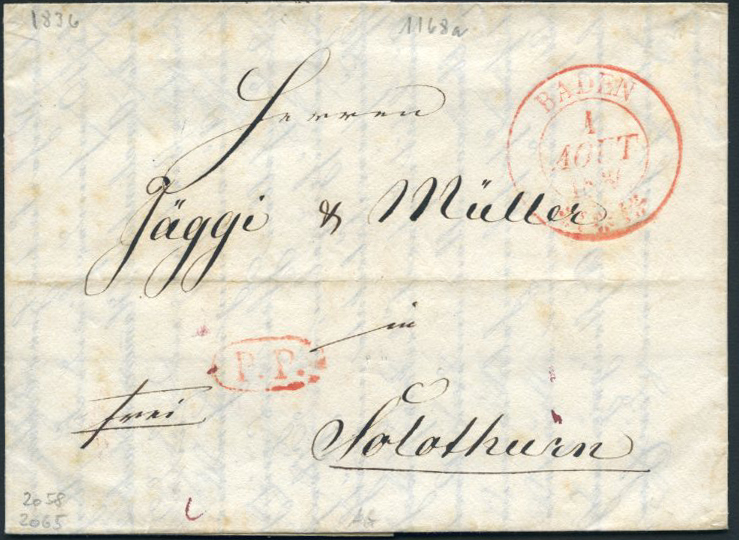 1836
1168a
Herren
BADEN
1
AOUT
Jäggi & Müller
in
P.P.
frei
Solothurn
2058
2065